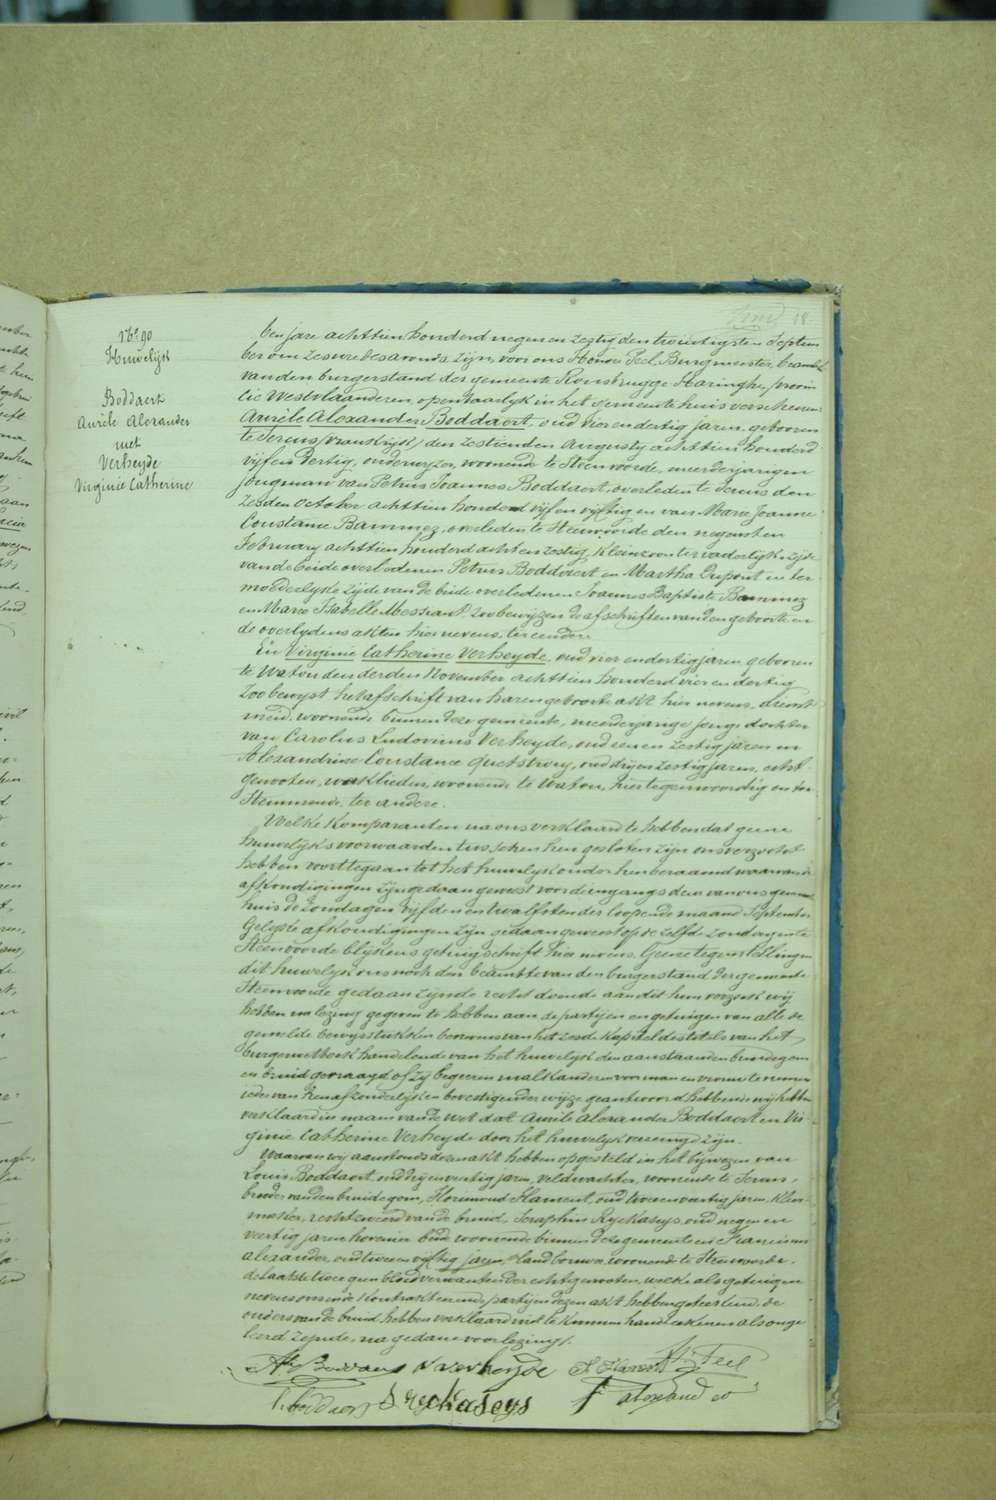 18
No 90
Huwelijk
Boddaert
Aurèle Alexander
met
Verheyde
Virginie Catherine
Ten jare achttien honderd negen en zestig den twintigsten Septem
ber om zes ure des avonds zijn, voor ons Honoré Feel, Burgmeester, beambte
van den burgerstand der gemeente Rousbrugge Haringhe, provin
cie Westvlaanderen, openbaarlijk in het Gemeentehuis verschenen:
Aurèle Alexander Boddaert, oud vier en dertig jaren, geboren
te (frankrijk) den zestienden Augusty achttien honderd
vijf en dertig, onderwyzer, woonende te Steenvoorde, meerderjarigen
jongman van Petrus Joannes Boddaert, overleden te den
zesden October achttien honderd vijf en vijftig en van Marie Joanne
Constance Bammez, overleden te Steenvoorde den negensten
February achttien honderd acht en zestig, kleinzoon ter vaderlyke zyde
van de beide overledenen Petrus Boddaert en Martha Dupont en ter
moederlyke zijde van de beide overledenen Joannes Baptiste Bammez
en Marie Isabelle Messiant, zoo bewyzen de afschriften van den geboorte en
de overlydens akten hier nevens, ter eendere
En Virginie Catherine Verheyde, oud vier en dertig jaren, geboren
te Watou den derden November achttien honderd vier en dertig
zoo bewyst het afschrift van haren geboorte akt hier nevens, dienst
meid, woonende binnen deze gemeente, meerderjarige jonge dochter
van Carolus Ludovicus Verheyde, oud een en zestig jaren en
Alexandrine Constance Quetstroey, oud dry en zestig jaren, echt
genooten, werklieden, woonende te Watou, hier tegenwoordig en toe
stemmende, ter andere.
Welke komparanten na ons verklaard te hebben dat geene
huwelijks voorwaarden tusschen hen gesloten zijn ons verzocht
hebben voort te gaan tot het huwelijk onder hen beraamd waarvan de
afkondigingen zijn gedaan geweest voor de ingangs deur van ons gemeente
huis de zondagen vijfden en twalfsten der loopende maand September
Gelyke afkondigingen zijn gedaan geweest op de zelfde zondagen te
Steenvoorde blykens getuigschrift hier nevens. Geene tegenstellingen
dit huwelyk ons noch den beambte van den burgerstand der gemeente
Steenvoorde gedaan zynde recht doende aan dit hun verzoek wij
hebben na lezing gegeven te hebben aan de partijen en getuigen van alle de
gemelde bewysstukken benevens van het zesde kapitel des titels van het
burgerwetboek handelende van het huwelyk den aanstaanden bruidegom
en bruid gevraagd of zij begeeren malkanderen voor man en vrouw te nemen
ieder van hen afzonderlyk en bevestigender wyze geantwoord hebbende wij hebben
verklaard in naam van de wet dat Aurèle Alexander Boddaert en Vir
ginie Catherine Verheyde door het huwelyk vereenigd zijn.
Waarvan wij aanstonds dezen akt hebben opgesteld in het bijwezen van
Louis Boddaert, oud dry en veertig jaren, veldwachter, woonende te
broeder van den bruidegom, Florimond Flament, oud twee en veertig jaren, klee-
maker, van de bruid, Seraphin Ryckaseys, oud negen en
veertig jaren hovenier beide woonende binnen deze gemeente en Franciscus
Alexander, oud twee en vijftig jaren, landbouwer, woonende te Steenvoorde,
de laatste twee geen bloedverwanten der echtgenooten, welke als getuigen
nevens ons en de kontrakteerende partijen dezen akt hebben geteekend, de
ouders van de bruid hebben verklaard niet te kunnen handteekenen als onge
leerd zynde, na gedane voorlezing.
Ae Boddaert V verheyde F. Flament H. Feel
L. boddaert S. ryckaseys F alexander